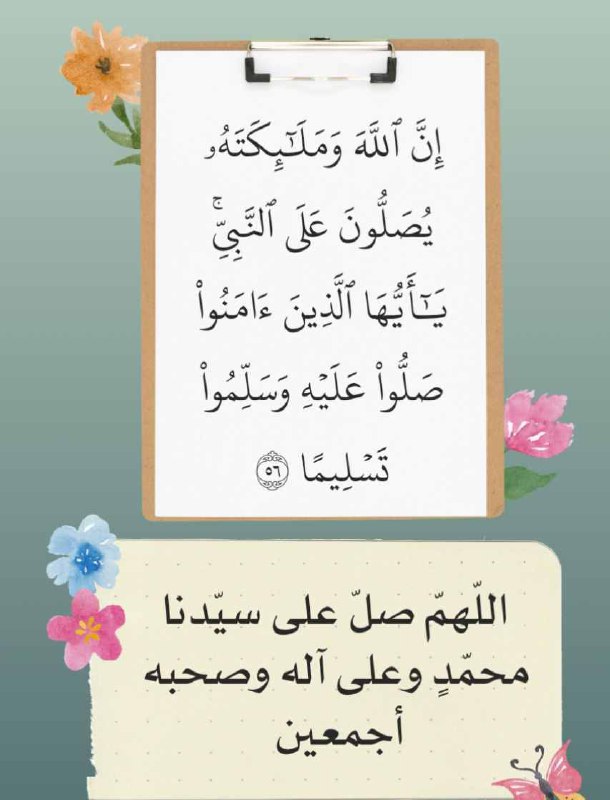 إِنَّ ٱللَّهَ وَمَلَـٰٓئِكَتَهُۥ
يُصَلُّونَ عَلَى ٱلنَّبِىِّۚ
يَـٰٓأَيُّهَا ٱلَّذِينَ ءَامَنُوا۟
صَلُّوا۟ عَلَيْهِ وَسَلِّمُوا۟
تَسْلِيمًا ٥٦
اللّهمّ صلّ على سيّدنا
محمّدٍ وعلى آله وصحبه
أجمعين